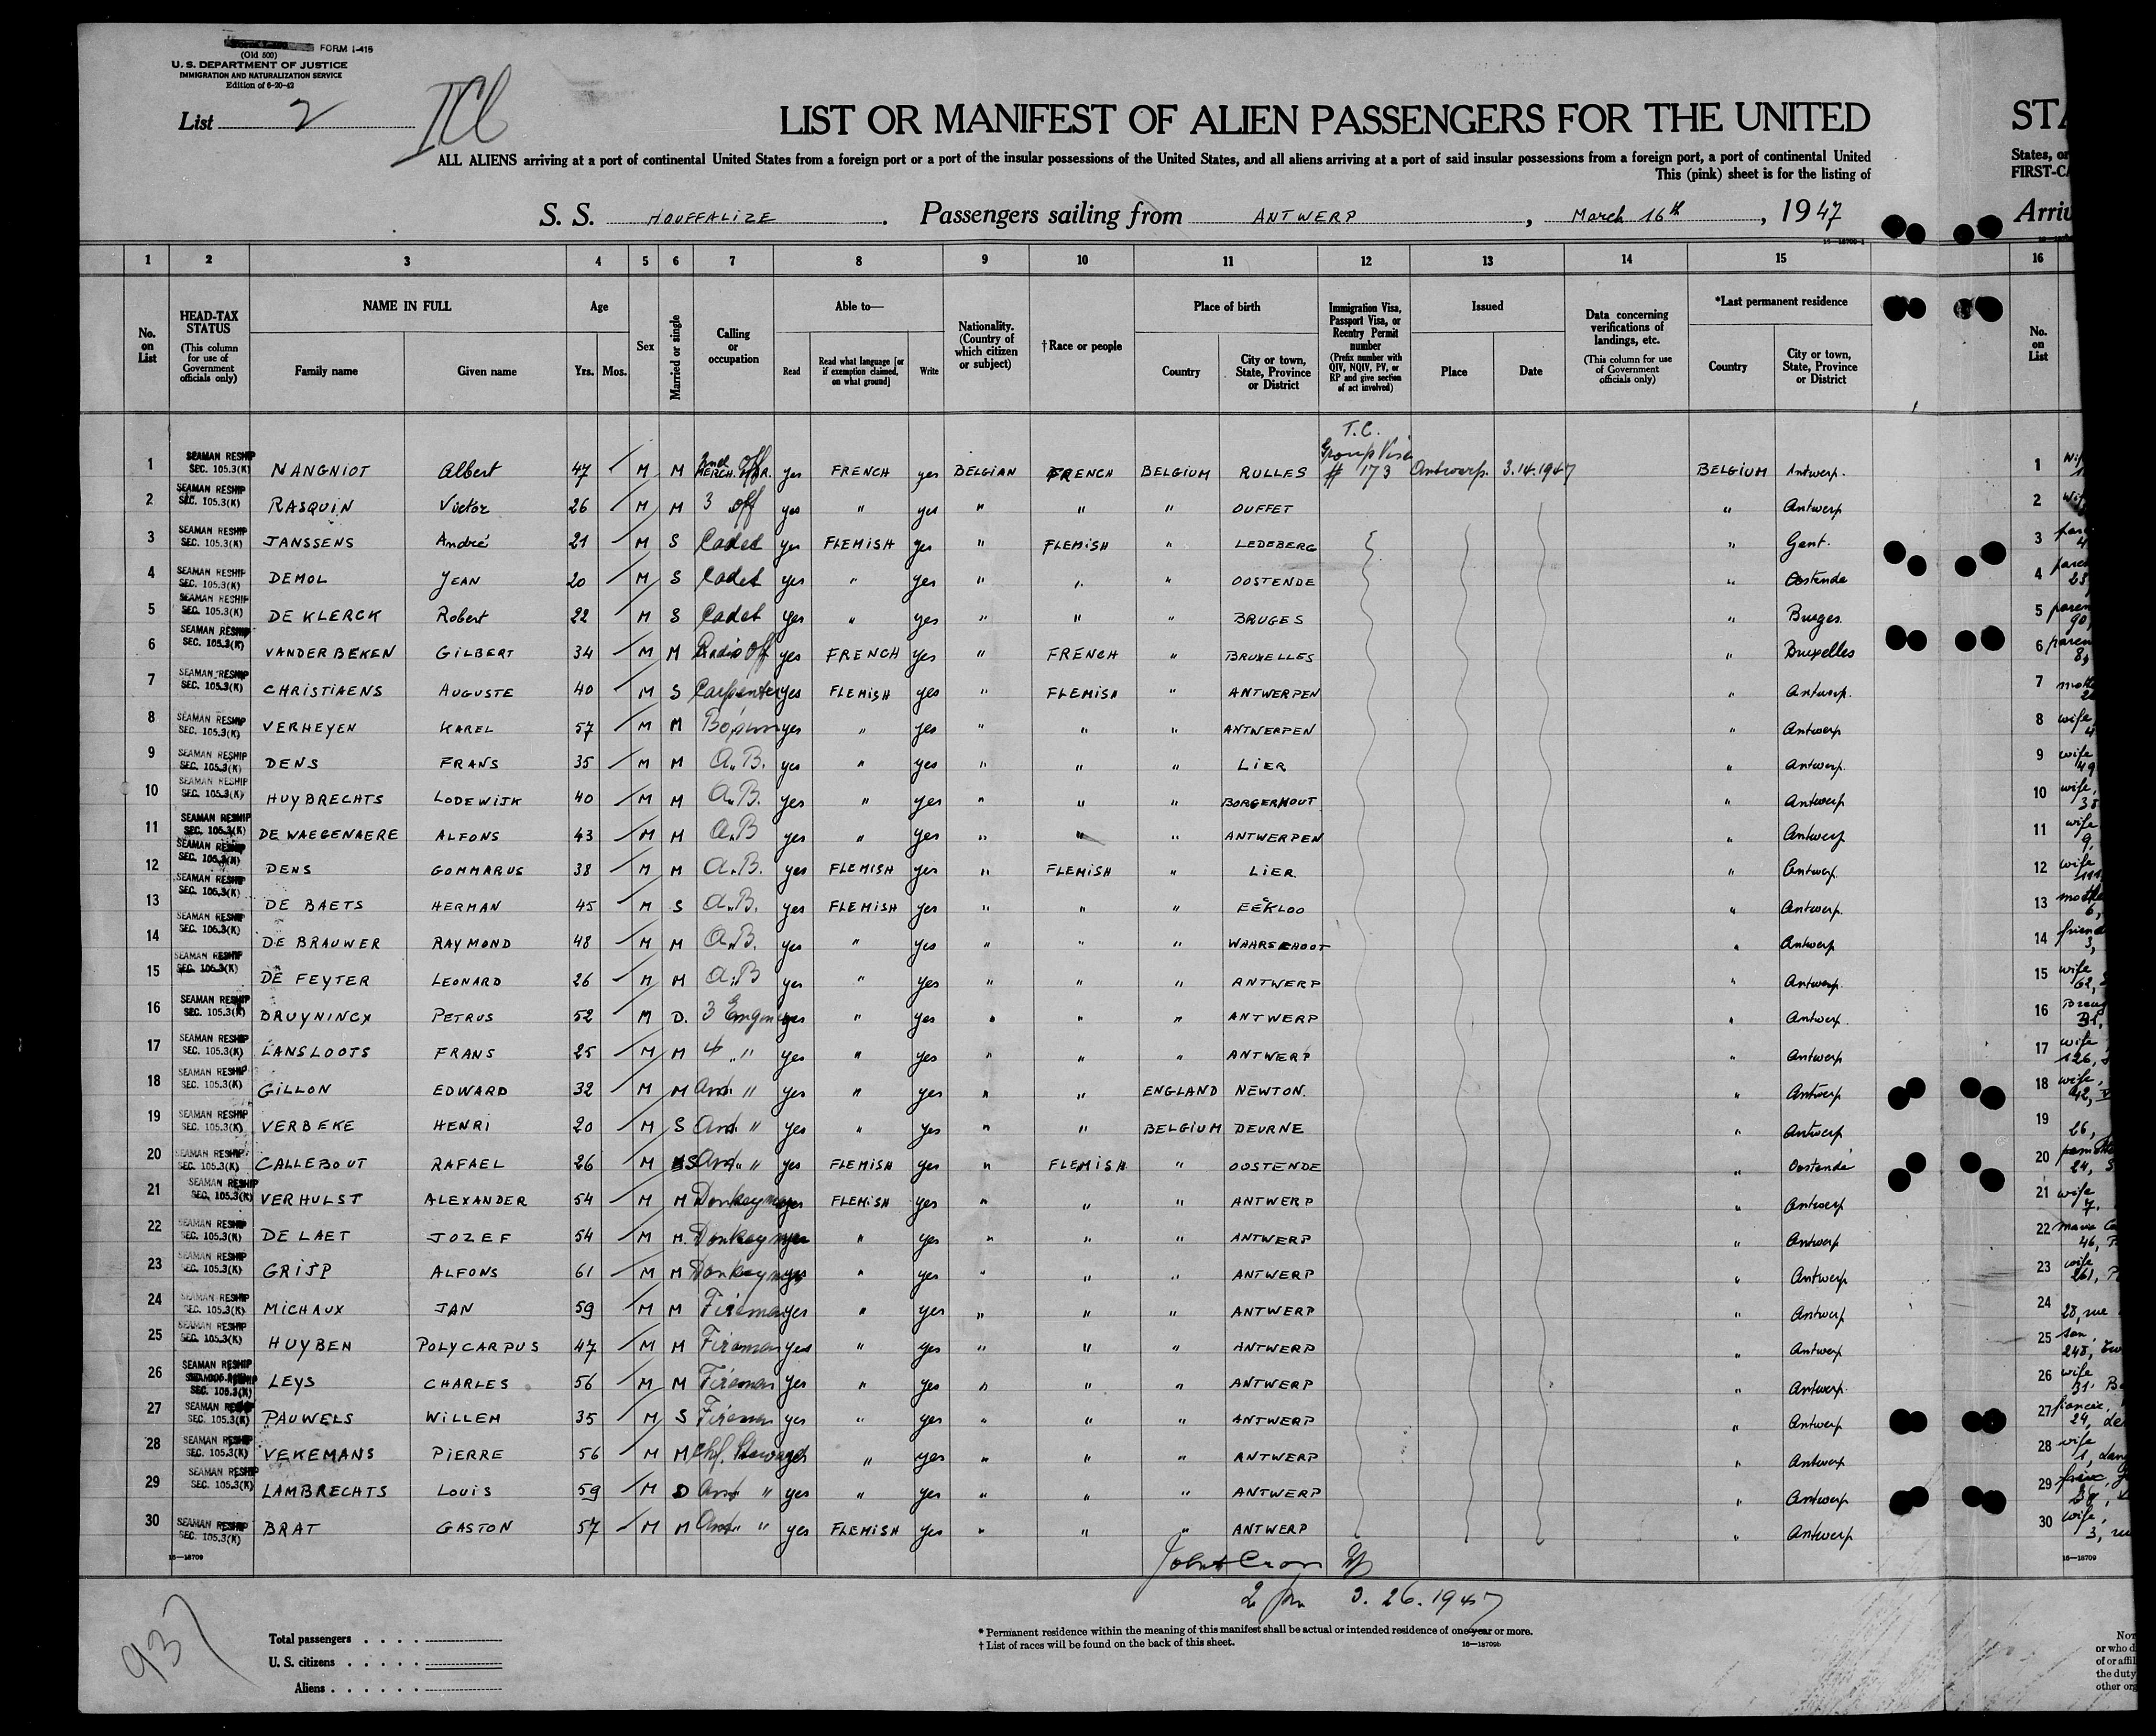 FORM I-415
(Old 500)
U. S. DEPARTMENT OF JUSTICE
IMMIGRATION AND NATURALIZATION SERVICE
Edition of 6-20-42
List 2
LIST OR MANIFEST OF ALIEN PASSENGERS FOR THE UNITED
ALL ALIENS arriving at a port of continental United States from a foreign port or a port of the insular possessions of the United States, and all aliens arriving at a port of said insular possessions from a foreign port, a port of continental United
This (pink) sheet is for the listing of
S. S. HOUFFALIZE. Passengers sailing from ANTWERP, March 16th, 1947
STA
States, or
FIRST-CA
Arriv
1 2 3 4 5 6 7 8 9 10 11 12 13 14 15 16
No. on List
HEAD-TAX STATUS (This column for use of Government officials only)
NAME IN FULL
Family name
Given name
Age
Yrs. Mos.
Sex
Married or single
Calling or occupation
Able to—
Read
Read what language [or if exemption claimed, on what ground]
Write
Nationality. (Country of which citizen or subject)
†Race or people
Place of birth
Country
City or town, State, Province or District
Immigration Visa, Passport Visa, or Reentry Permit number (Prefix number with QIV, NQIV, PV, or RP and give section of act involved)
Issued
Place
Date
Data concerning verifications of landings, etc. (This column for use of Government officials only)
*Last permanent residence
Country
City or town, State, Province or District
No. on List
T.C.
Group Visa
1 SEAMAN RESHIP SEC. 105.3(K) NANGNIOT Albert 47 M M 2nd off yes FRENCH yes BELGIAN FRENCH BELGIUM RULLES # 173 Antwerp. 3.14.1947 BELGIUM Antwerp. 1
2 SEAMAN RESHIP SEC. 105.3(K) RASQUIN Victor 26 M M 3 off yes " yes " " " OUFFET " Antwerp 2
3 SEAMAN RESHIP SEC. 105.3(K) JANSSENS André 21 M S Cadet yes FLEMISH yes " FLEMISH " LEDEBERG " Gent. 3
4 SEAMAN RESHIP SEC. 105.3(K) DEMOL JEAN 20 M S Cadet yes " yes " " " OOSTENDE " Oostende 4
5 SEAMAN RESHIP SEC. 105.3(K) DE KLERCK Robert 22 M S Cadet yes " yes " " " BRUGES " Bruges 5
6 SEAMAN RESHIP SEC. 105.3(K) VANDERBEKEN GILBERT 34 M M Radio Off yes FRENCH yes " FRENCH " BRUXELLES " Bruxelles 6
7 SEAMAN RESHIP SEC. 105.3(K) CHRISTIAENS AUGUSTE 40 M S Carpenter yes FLEMISH yes " FLEMISH " ANTWERPEN " Antwerp. 7
8 SEAMAN RESHIP SEC. 105.3(K) VERHEYEN KAREL 57 M M yes " yes " " " ANTWERPEN " Antwerp 8 wife
9 SEAMAN RESHIP SEC. 105.3(K) DENS FRANS 35 M M A.B. yes " yes " " " LIER " Antwerp. 9 wife 49
10 SEAMAN RESHIP SEC. 105.3(K) HUYBRECHTS LODEWIJK 40 M M A.B. yes " yes " " " BORGERHOUT " Antwerp 10 wife, 38
11 SEAMAN RESHIP SEC. 105.3(K) DE WAEGENAERE ALFONS 43 M M A.B yes " yes " " " ANTWERPEN " Antwerp 11 wife 9,
12 SEAMAN RESHIP SEC. 105.3(K) DENS GOMMARUS 38 M M A.B. yes FLEMISH yes " FLEMISH " LIER " Antwerp. 12 wife
13 SEAMAN RESHIP SEC. 105.3(K) DE BAETS HERMAN 45 M S A.B. yes FLEMISH yes " " " EEKLOO " Antwerp. 13 6,
14 SEAMAN RESHIP SEC. 105.3(K) DE BRAUWER RAYMOND 48 M M A.B. yes " yes " " " WAARSCHOOT " Antwerp 14 3,
15 SEAMAN RESHIP SEC. 105.3(K) DE FEYTER LEONARD 26 M M A.B yes " yes " " " ANTWERP " Antwerp. 15 wife 62,
16 SEAMAN RESHIP SEC. 105.3(K) BRUYNINCX PETRUS 52 M D. 3 Engineer yes " yes " " " ANTWERP " Antwerp. 16 31,
17 SEAMAN RESHIP SEC. 105.3(K) LANSLOOTS FRANS 25 M M 4 " yes " yes " " " ANTWERP " Antwerp 17 wife 126,
18 SEAMAN RESHIP SEC. 105.3(K) GILLON EDWARD 32 M M " yes " yes " " ENGLAND NEWTON. " Antwerp 18 wife, 42,
19 SEAMAN RESHIP SEC. 105.3(K) VERBEKE HENRI 20 M S " yes " yes " " BELGIUM DEURNE " Antwerp 19 26,
20 SEAMAN RESHIP SEC. 105.3(K) CALLEBOUT RAFAEL 26 M S " yes FLEMISH yes " FLEMISH " OOSTENDE " Oostende 20 24,
21 SEAMAN RESHIP SEC. 105.3(K) VERHULST ALEXANDER 54 M M Donkeyman yes FLEMISH yes " " " ANTWERP " Antwerp 21 wife 7.
22 SEAMAN RESHIP SEC. 105.3(K) DE LAET JOZEF 54 M M. Donkeyman yes " yes " " " ANTWERP " Antwerp 22 46,
23 SEAMAN RESHIP SEC. 105.3(K) GRIJP ALFONS 61 M M Donkeyman yes " yes " " " ANTWERP " Antwerp 23 wife 261,
24 SEAMAN RESHIP SEC. 105.3(K) MICHAUX JAN 59 M M Fireman yes " yes " " " ANTWERP " Antwerp 24 28, rue
25 SEAMAN RESHIP SEC. 105.3(K) HUYBEN POLYCARPUS 47 M M Fireman yes " yes " " " ANTWERP " Antwerp 25 son, 248,
26 SEAMAN RESHIP SEC. 105.3(K) LEYS CHARLES 56 M M Fireman yes " yes " " " ANTWERP " Antwerp. 26 wife 31.
27 SEAMAN RESHIP SEC. 105.3(K) PAUWELS WILLEM 35 M S Fireman yes " yes " " " ANTWERP " Antwerp 27 24,
28 SEAMAN RESHIP SEC. 105.3(K) VEKEMANS PIERRE 56 M M Chf. Steward yes " yes " " " ANTWERP " Antwerp 28 wife 1,
29 SEAMAN RESHIP SEC. 105.3(K) LAMBRECHTS LOUIS 59 M D " yes " yes " " " ANTWERP " Antwerp 29
30 SEAMAN RESHIP SEC. 105.3(K) BRAT GASTON 57 M M " yes FLEMISH yes " " " ANTWERP " Antwerp 30 wife, 3,
16—18709
16—18709
2 pm 3.26.1947
937
Total passengers
U. S. citizens
Aliens
* Permanent residence within the meaning of this manifest shall be actual or intended residence of one year or more.
† List of races will be found on the back of this sheet.
16—18709b
or who d
of or affil
the duty
other org